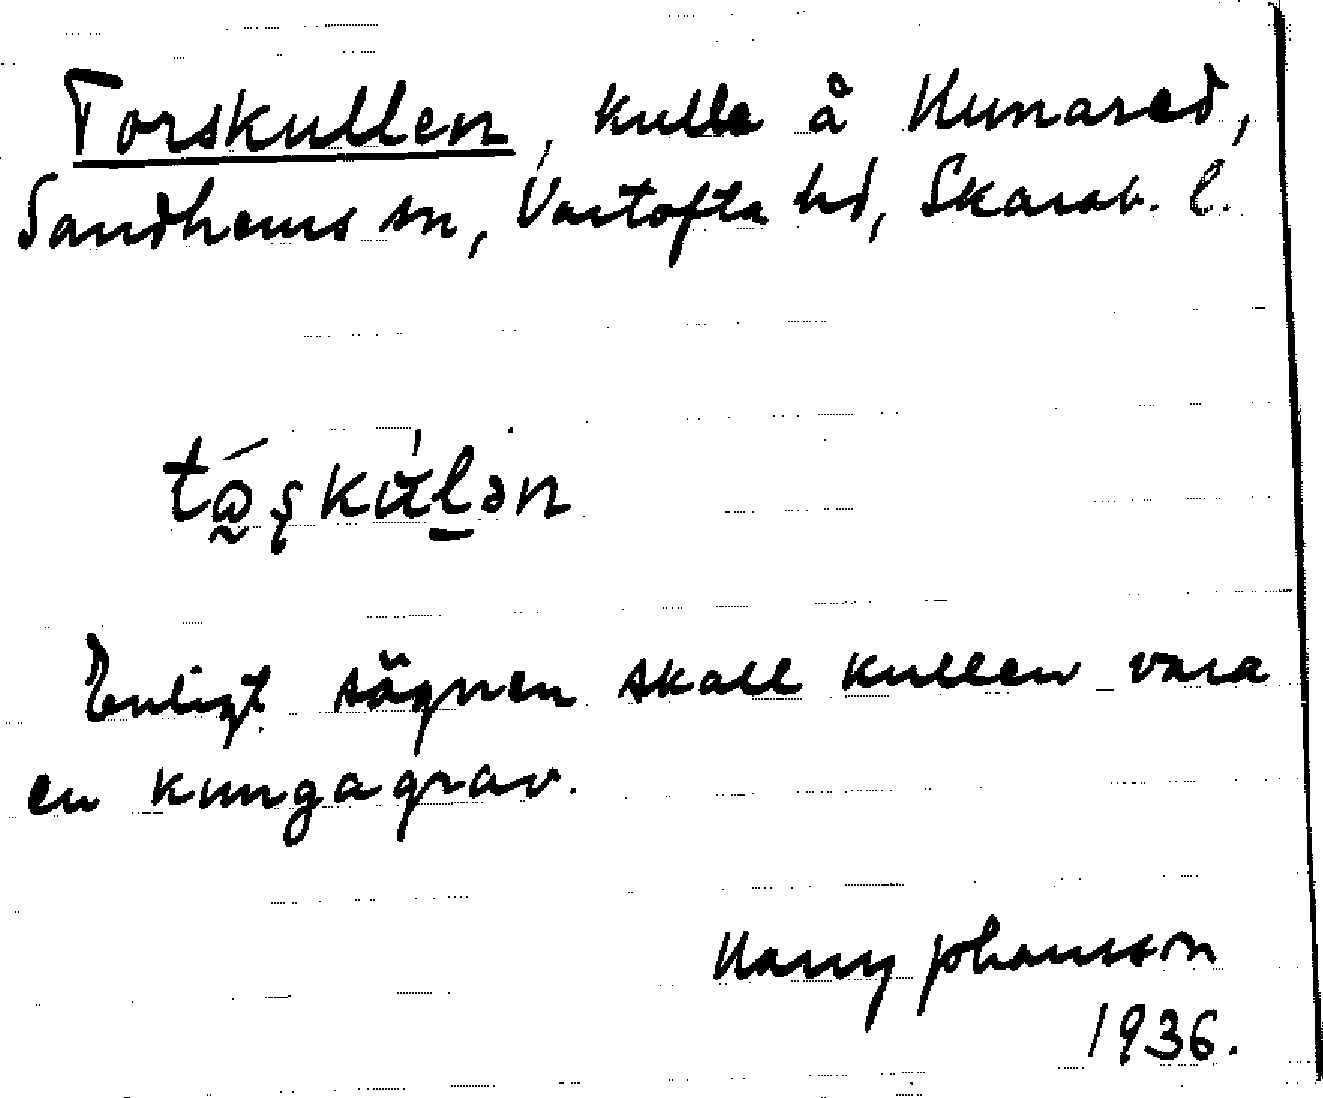 Torskullen, kulle å Hunared,
Sandhems sn, Vartofta hd, Skarab. l.
tå̰ʂkùḻən
Enligt sägnen skall kullen vara
en kungagrav.
Harry Johansson
1936.